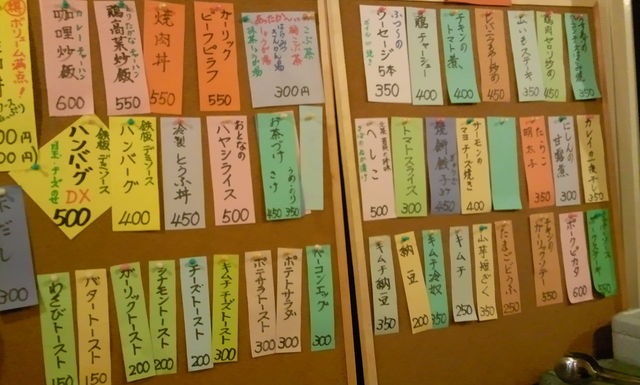 ボリューム満点!
カレーチャーハン
咖哩炒飯
600
とりたかなチャーハン
鶏高菜炒飯
550
焼肉丼
550
ガーリック
ビーフピラフ
550
あったかい
300円
ふつ〜の
ソーセージ5本
350
鶏チャーシュー
400
チキンの
トマト煮
400
450
丸いもステーキ
350
鶏肉セロリ炒め
450
350
300
ハンバーグDX
チーズのせ
500
鉄板デミソース
ハンバーグ
400
冷製とうふ丼
450
おとなの
ハヤシライス
500
お茶づけ
さけ
うめ のり
450 350
へしこ
500
トマトスライス
300
焼餃子
450
サーモンの
マヨチーズ焼き
400
たらこ
明太子
350
にしんの
甘露煮
300
カレイの一夜干し
350
わさびトースト
150
バタートースト
150
ガーリックトースト
200
シナモントースト
200
チーズトースト
200
キムチチーズトースト
300
ポテサラトースト
300
ポテトサラダ
300
ベーコンエッグ
300
キムチ納豆
350
納豆
200
キムチ冷奴
350
キムチ
250
山芋短ざく
350
たまごどうふ
250
チキンの
ガーリックソテー
550
ポークピカタ
600
550